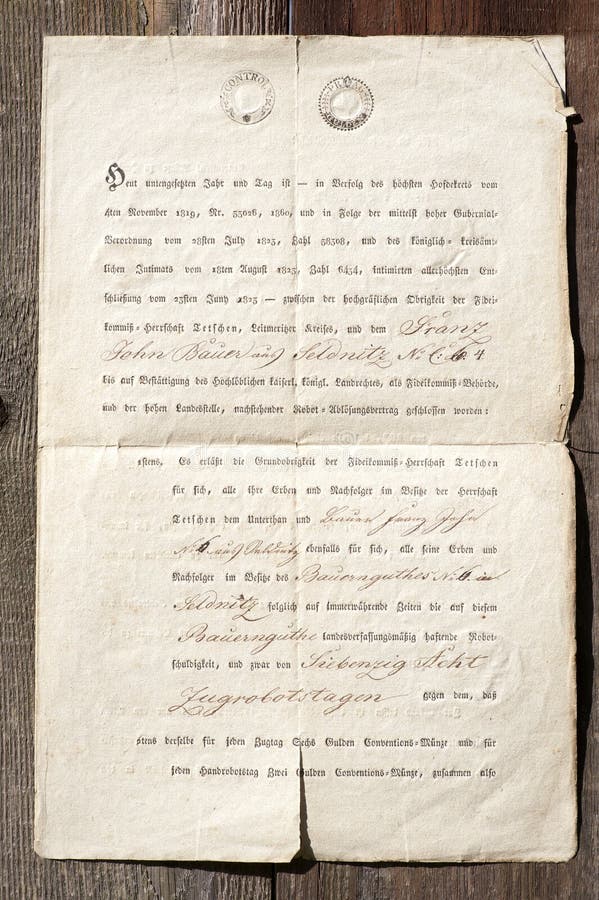 CONTROL
Heut untengesetzten Jahr und Tag ist — in Verfolg des höchsten Hofdekrets vom
4ten November 1819, Nr. 35026, 1860, und in Folge der mittelst hoher Gubernial-
Verordnung vom 28sten July 1825, Zahl 38508, und des königlich-kreisämt-
lichen Intimats vom 18ten August 1825, Zahl 6454, intimirten allerhöchsten Ent-
schließung vom 25sten Juny 1825 — zwischen der hochgräflichen Obrigkeit der Fidei-
kommiß-Herrschaft Tetschen, Leitmeritzer Kreises, und dem Franz
John Bauer aus Seldnitz No C: 6. 4
bis auf Bestättigung des Hochlöblichen kaiserl. königl. Landrechtes, als Fideikommiß-Behörde,
und der hohen Landesstelle, nachstehender Robot-Ablösungsvertrag geschlossen worden:
1stens. Es erläßt die Grundobrigkeit der Fideikommiß-Herrschaft Tetschen
für sich, alle ihre Erben und Nachfolger im Besitze der Herrschaft
Tetschen dem Unterthan und Bauer Franz John
No 6 aus Seldnitz ebenfalls für sich, alle seine Erben und
Nachfolger im Besitze des Bauernguthes No: 6 in
Seldnitz folglich auf immerwährende Zeiten die auf diesem
Bauernguthe landesverfassungsmäßig haftende Robot-
schuldigkeit, und zwar von Siebenzig Acht
Zugrobotstagen gegen dem, daß
1tens derselbe für jeden Zugtag Sechs Gulden Conventions-Münze und für
jeden Handrobotstag Zwei Gulden Conventions-Münze, zusammen also